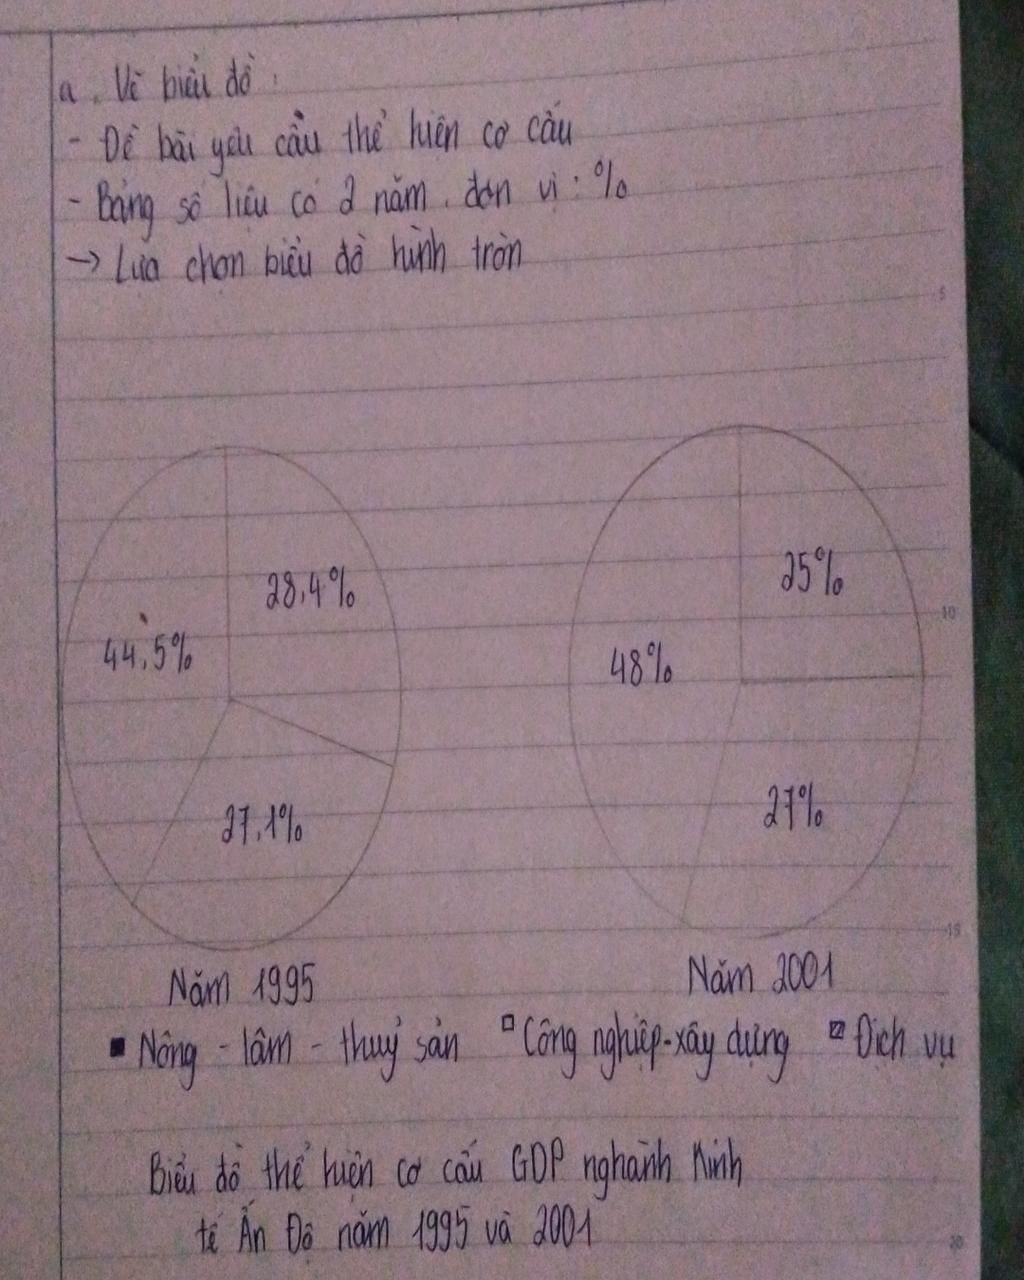 a. Vẽ biểu đồ:
- Đề bài yêu cầu thể hiện cơ cấu
- Bảng số liệu có 2 năm. đơn vị: %
→ Lựa chọn biểu đồ hình tròn
5
28,4%
25%
10
44,5%
48%
27,1%
27%
15
Năm 1995
Năm 2001
Nông - lâm - thuỷ sản Công nghiệp-xây dựng Dịch vụ
Biểu đồ thể hiện cơ cấu GDP nghành kinh
tế Ấn Độ năm 1995 và 2001
20